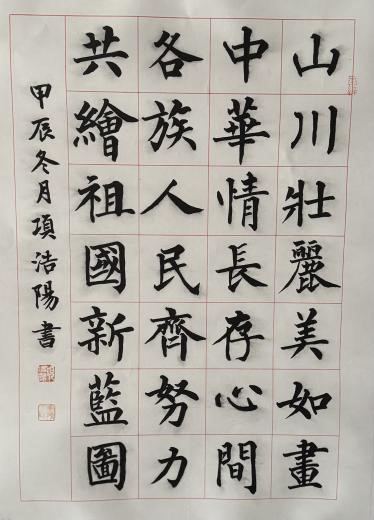 山川壯麗美如畫
中華情長存心間
各族人民齊努力
共繪祖國新藍圖
甲辰冬月項浩陽書